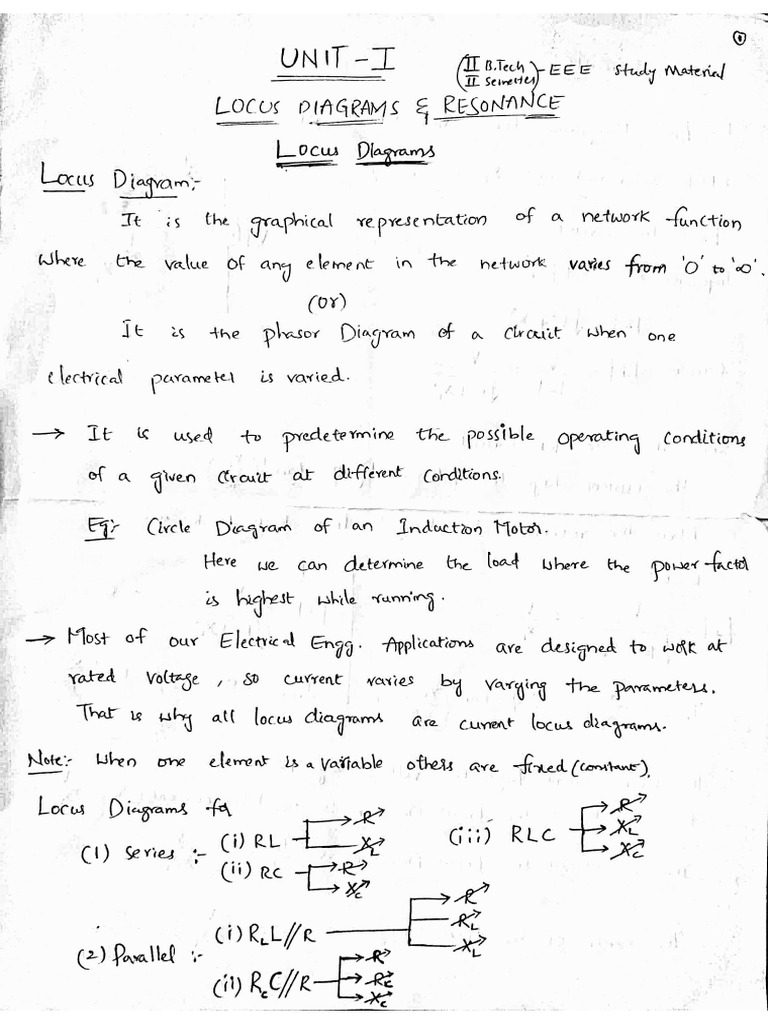 1
UNIT-I
(II B.Tech II Semester)-EEE Study Material
LOCUS DIAGRAMS & RESONANCE
LOCUS DIagrams
Locus Diagram:-
It is the graphical representation of a network function
where the value of any element in the network varies from '0' to '∞'.
(or)
It is the phasor Diagram of a circuit when one
electrical parameter is varied.
→ It is used to predetermine the possible operating conditions
of a given circuit at different conditions.
Eg:- Circle Diagram of an Induction Motor.
Here we can determine the load where the power factor
is highest while running.
→ Most of our Electrical Engg. Applications are designed to work at
rated voltage, so current varies by varying the parameters.
That is why all locus diagrams are current locus diagrams.
Note:- When one element is a variable others are fixed (constant).
Locus Diagrams for
(1) Series :- (i) RL R XL
(ii) RC R Xc
(iii) RLC R XL Xc
(2) Parallel :- (i) RLL//R R RL XL
(ii) RcC//R R Rc Xc